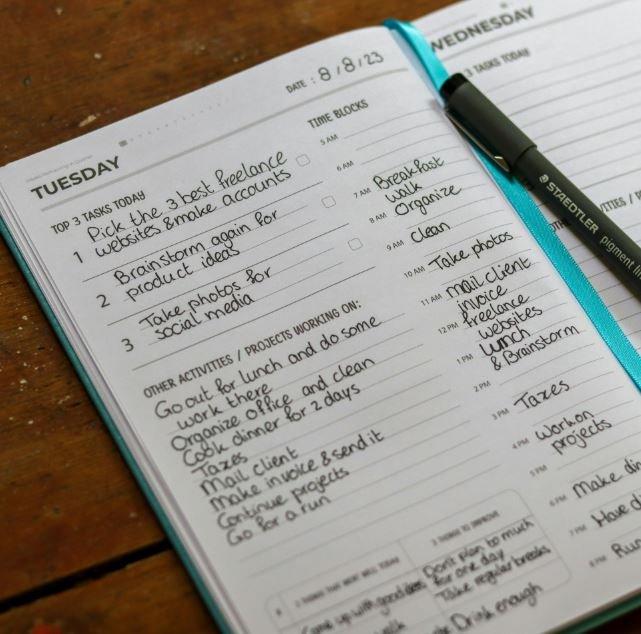 DATE : 8/8/23
TUESDAY
TOP 3 TASKS TODAY
1 Pick the 3 best freelance
websites & make accounts
2 Brainstorm again for
product ideas
3 Take photos for
social media
OTHER ACTIVITIES / PROJECTS WORKING ON:
Go out for lunch and do some
work there
Organize office and clean
Cook dinner for 2 days
Taxes
Mail client
Make invoice & send it
Continue projects
Go for a run
TIME BLOCKS
5 AM
6 AM
7 AM Breakfast
walk
8 AM Organize
9 AM Clean
10 AM Take photos
11 AM mail client
invoice
12 PM freelance
websites
1 PM Lunch
& Brainstorm
2 PM
3 PM Taxes
4 PM Work on
projects
5 PM
6 PM Make
7 PM Have
8 PM Run
3 THINGS THAT WENT WELL TODAY
Come up with good
walk
3 THINGS TO IMPROVE
Don't plan to much
for one day
Take regular breaks
Drink enough
WEDNESDAY
3 TASKS TODAY
STAEDTLER pigment